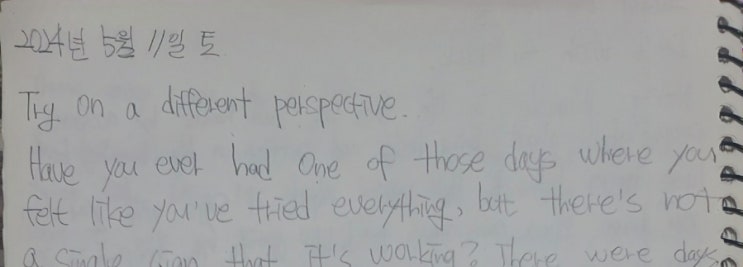 2024년 5월 11일 토
Try on a different perspective.
Have you ever had one of those days where you
felt like you've tried everything, but there's not
a single sign that it's working? There were days